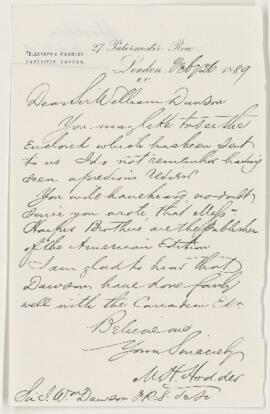 27 Paternoster Row.
TELEGRAPHIC ADDRESS:
EXPOSITOR LONDON.
London, 26 1889
E.C.
Dear Sir William Dawson
You may like to see the
Enclosed which has been sent
to us I do not remember having
seen a previous
You will have heard no doubt
since you wrote, that Messrs
Harper Brothers are the publishers
of the American Edition
I am glad to hear that
Dawsons have done fairly
well with the Canadian Edn
Believe me
Yours Sincerely
M H Hodder
Sir J. Wm Dawson F.R.S.